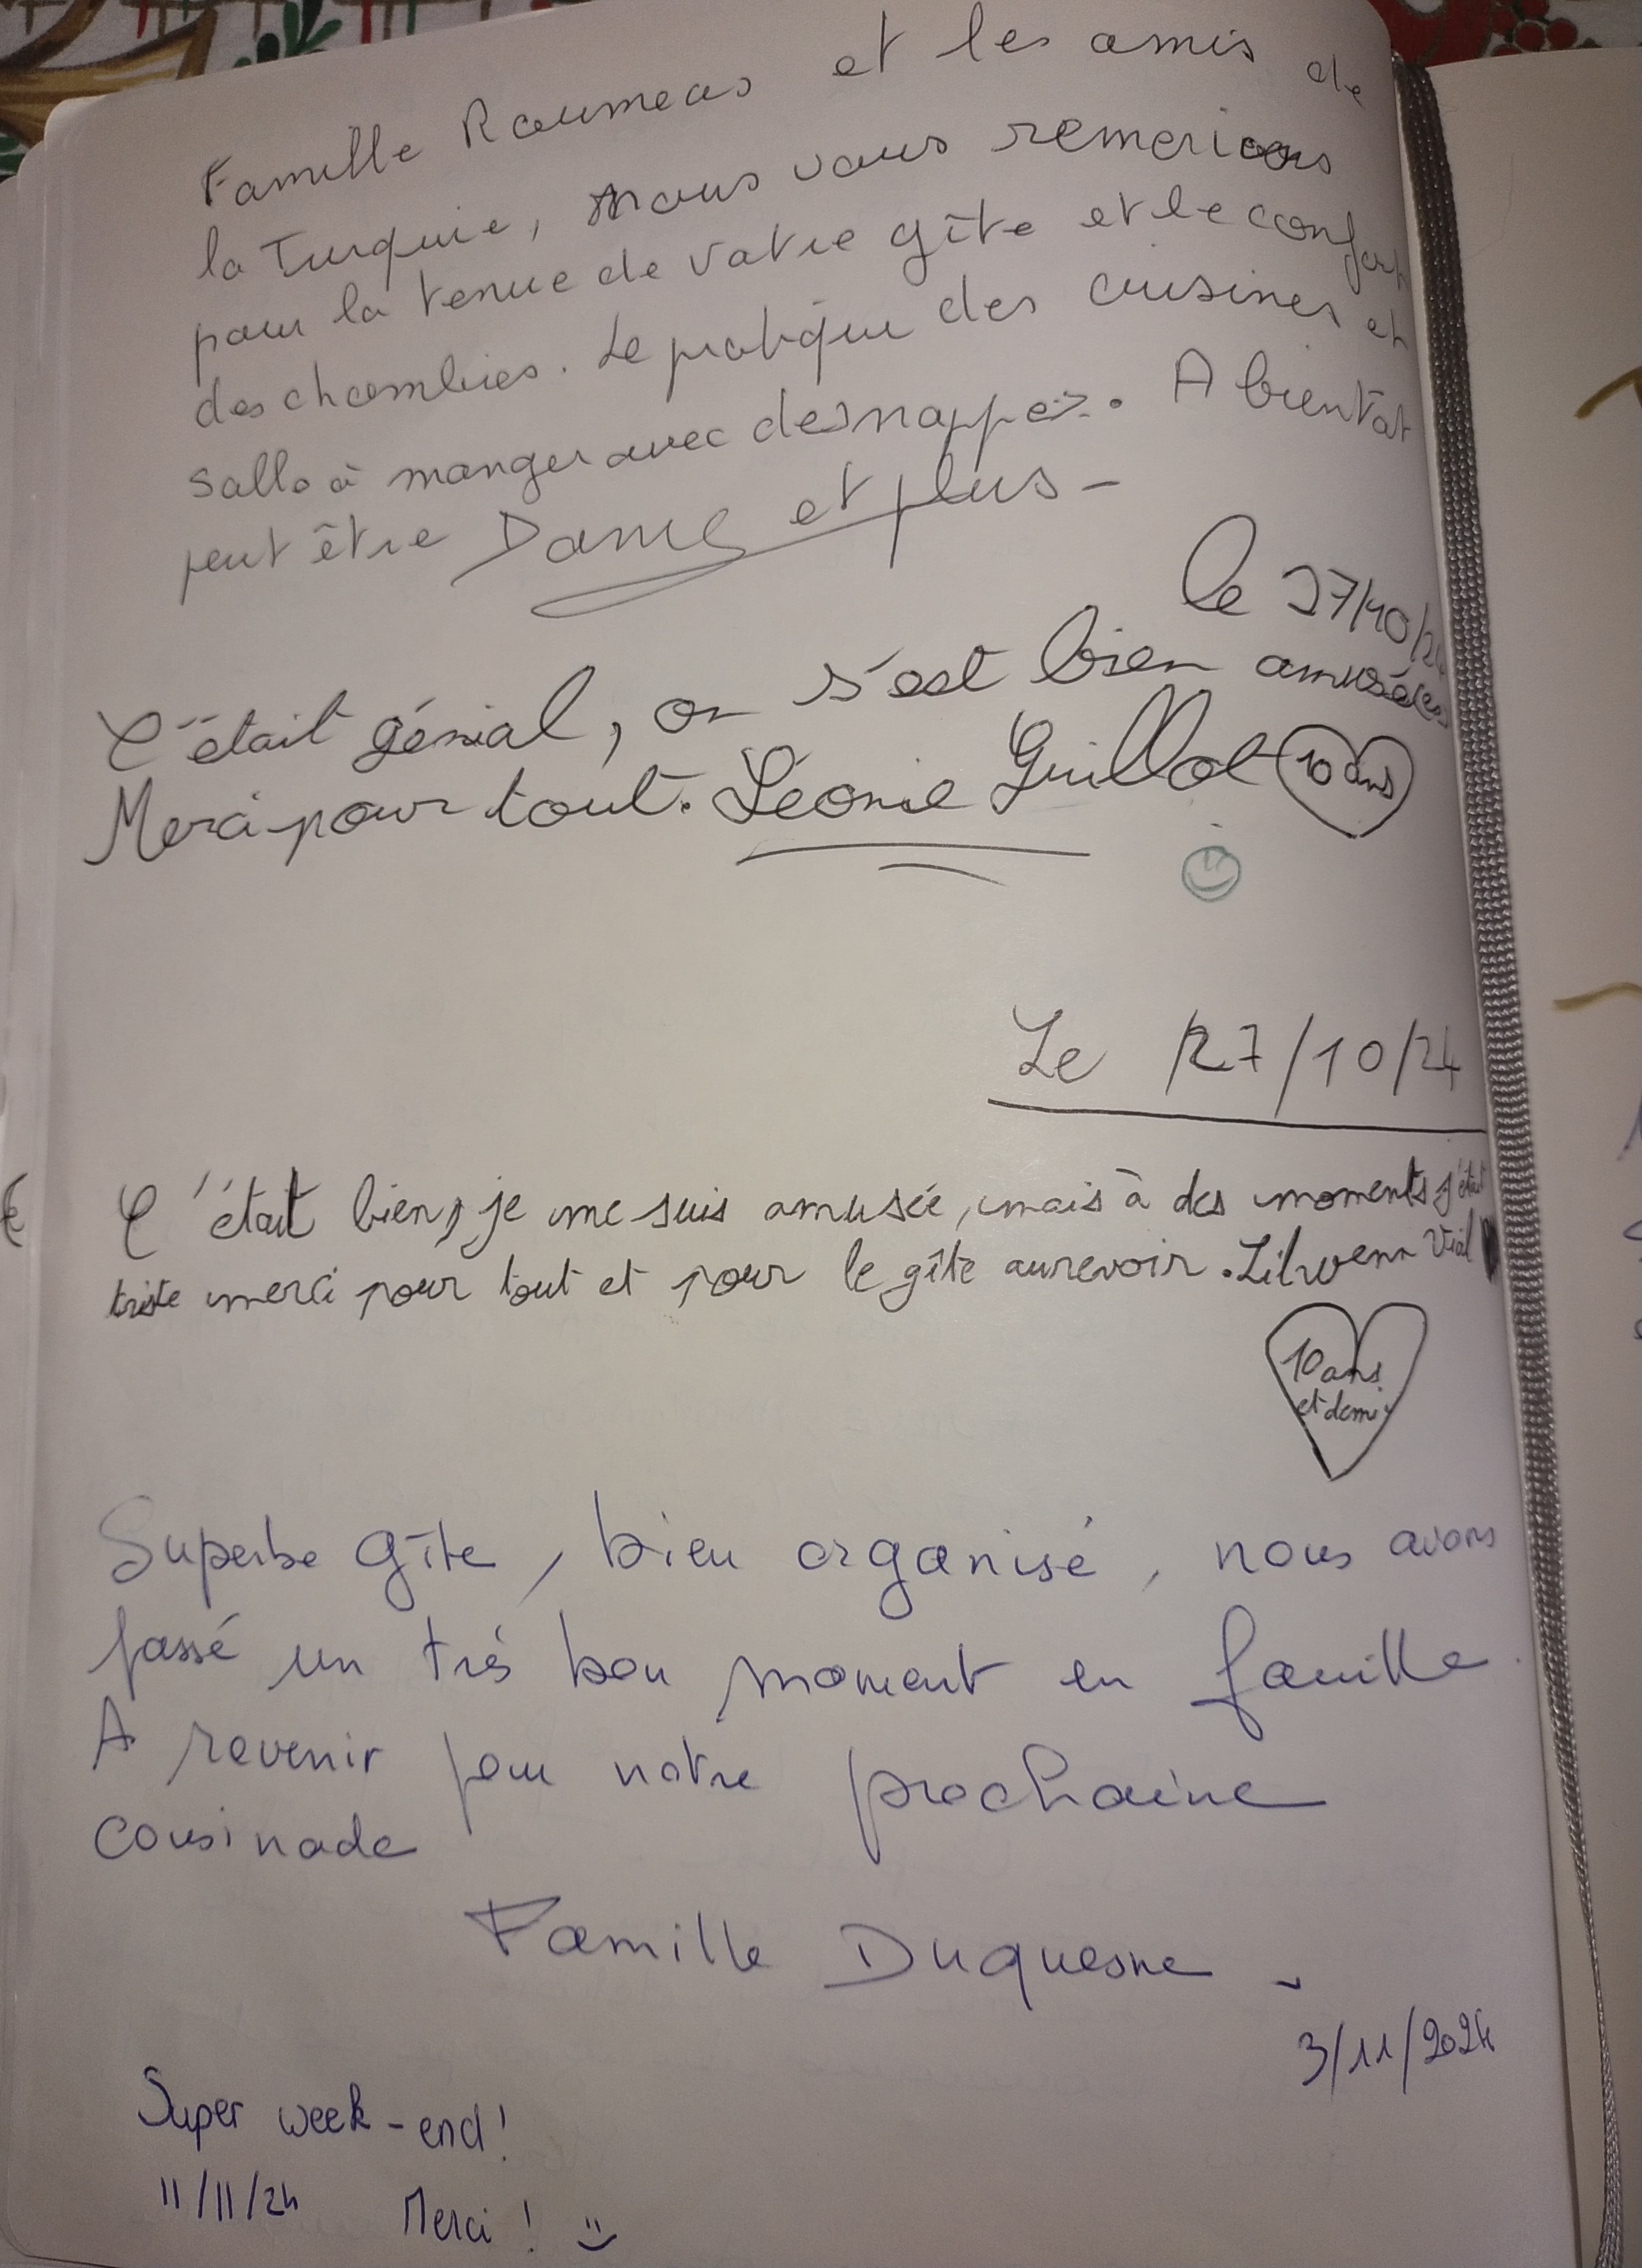 Famille Roumeas et les amis de
la Turquie, nous vous remericons
pour la tenue de votre gîte et le confort
des chambres. Le pratique des cuisines et
salle à manger avec des nappes. A bientôt
peut être Dame et plus -
le 27/10/24
C'était génial, on s'est bien amusées
Merci pour tout. Léonie Guillot 10 ans
Le 27/10/24
C'était bien, je me suis amusée, mais à des moments j'étais
triste merci pour tout et pour le gîte aurevoir. Vial
10 ans
et demi
Superbe gîte, bien organisé, nous avons
passé un très bon moment en famille.
A revenir pour notre prochaine
cousinade
Famille Duquesne -
3/11/2024
Super week-end!
11/11/24 Merci !